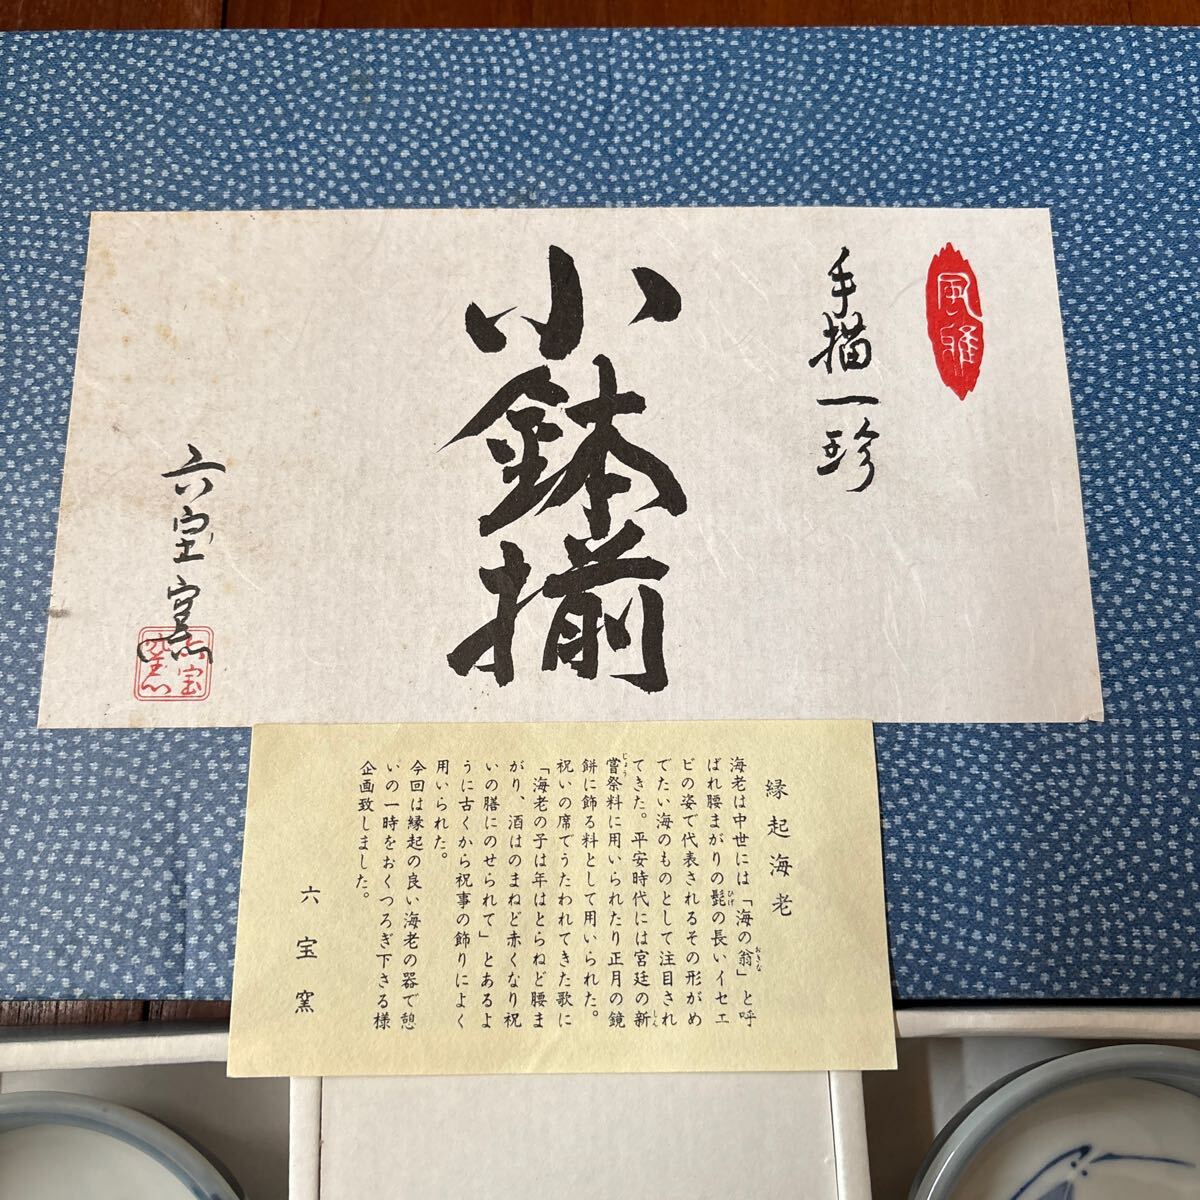 風雅
手描一珍
小鉢揃
六宝窯
六宝窯
縁起海老
海老は中世には「海の翁」と呼
ばれ腰まがりの髭の長いイセエ
ビの姿で代表されるその形がめ
でたい海のものとして注目され
てきた。平安時代には宮廷の新
嘗祭料に用いられたり正月の鏡
餅に飾る料として用いられた。
祝いの席でうたわれてきた歌に
「海老の子は年はとらねど腰ま
がり、酒はのまねど赤くなり祝
いの膳にのせられて」とあるよ
うに古くから祝事の飾りによく
用いられた。
今回は縁起の良い海老の器で憩
いの一時をおくつろぎ下さる様
企画致しました。
六宝窯